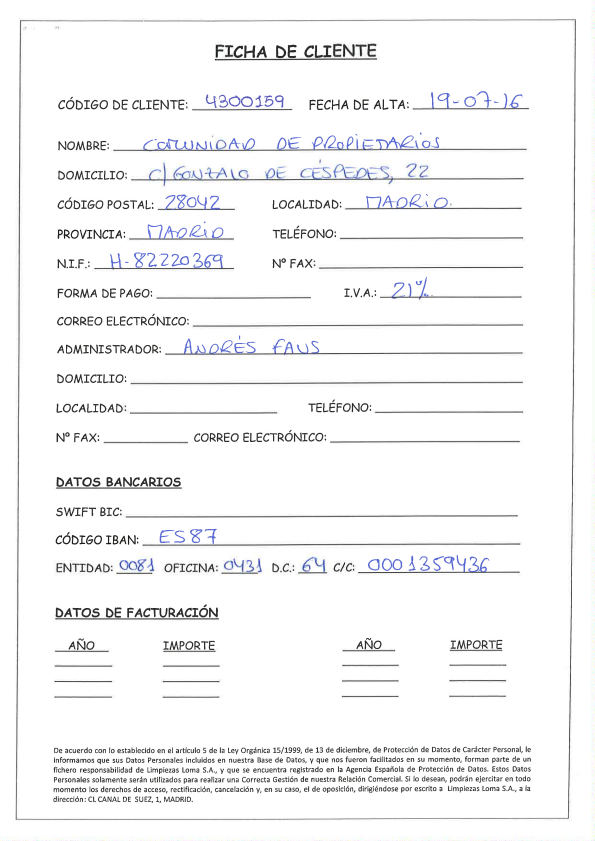 FICHA DE CLIENTE
CÓDIGO DE CLIENTE: 4300159 FECHA DE ALTA: 19-07-16
NOMBRE: COMUNIDAD DE PROPIETARIOS
DOMICILIO: C/ GONZALO DE CÉSPEDES, 22
CÓDIGO POSTAL: 28042 LOCALIDAD: MADRID.
PROVINCIA: MADRID TELÉFONO:
N.I.F.: H-82220369 Nº FAX:
FORMA DE PAGO: I.V.A.: 21%
CORREO ELECTRÓNICO:
ADMINISTRADOR: ANDRÉS FAUS
DOMICILIO:
LOCALIDAD: TELÉFONO:
Nº FAX: CORREO ELECTRÓNICO:
DATOS BANCARIOS
SWIFT BIC:
CÓDIGO IBAN: ES87
ENTIDAD: 0081 OFICINA: 0431 D.C.: 64 C/C: 0001359436
DATOS DE FACTURACIÓN
AÑO IMPORTE AÑO IMPORTE
De acuerdo con lo establecido en el artículo 5 de la Ley Orgánica 15/1999, de 13 de diciembre, de Protección de Datos de Carácter Personal, le
informamos que sus Datos Personales incluidos en nuestra Base de Datos, y que nos fueron facilitados en su momento, forman parte de un
fichero responsabilidad de Limpiezas Loma S.A., y que se encuentra registrado en la Agencia Española de Protección de Datos. Estos Datos
Personales solamente serán utilizados para realizar una Correcta Gestión de nuestra Relación Comercial. Si lo desean, podrán ejercitar en todo
momento los derechos de acceso, rectificación, cancelación y, en su caso, el de oposición, dirigiéndose por escrito a Limpiezas Loma S.A., a la
dirección: CL CANAL DE SUEZ, 1, MADRID.